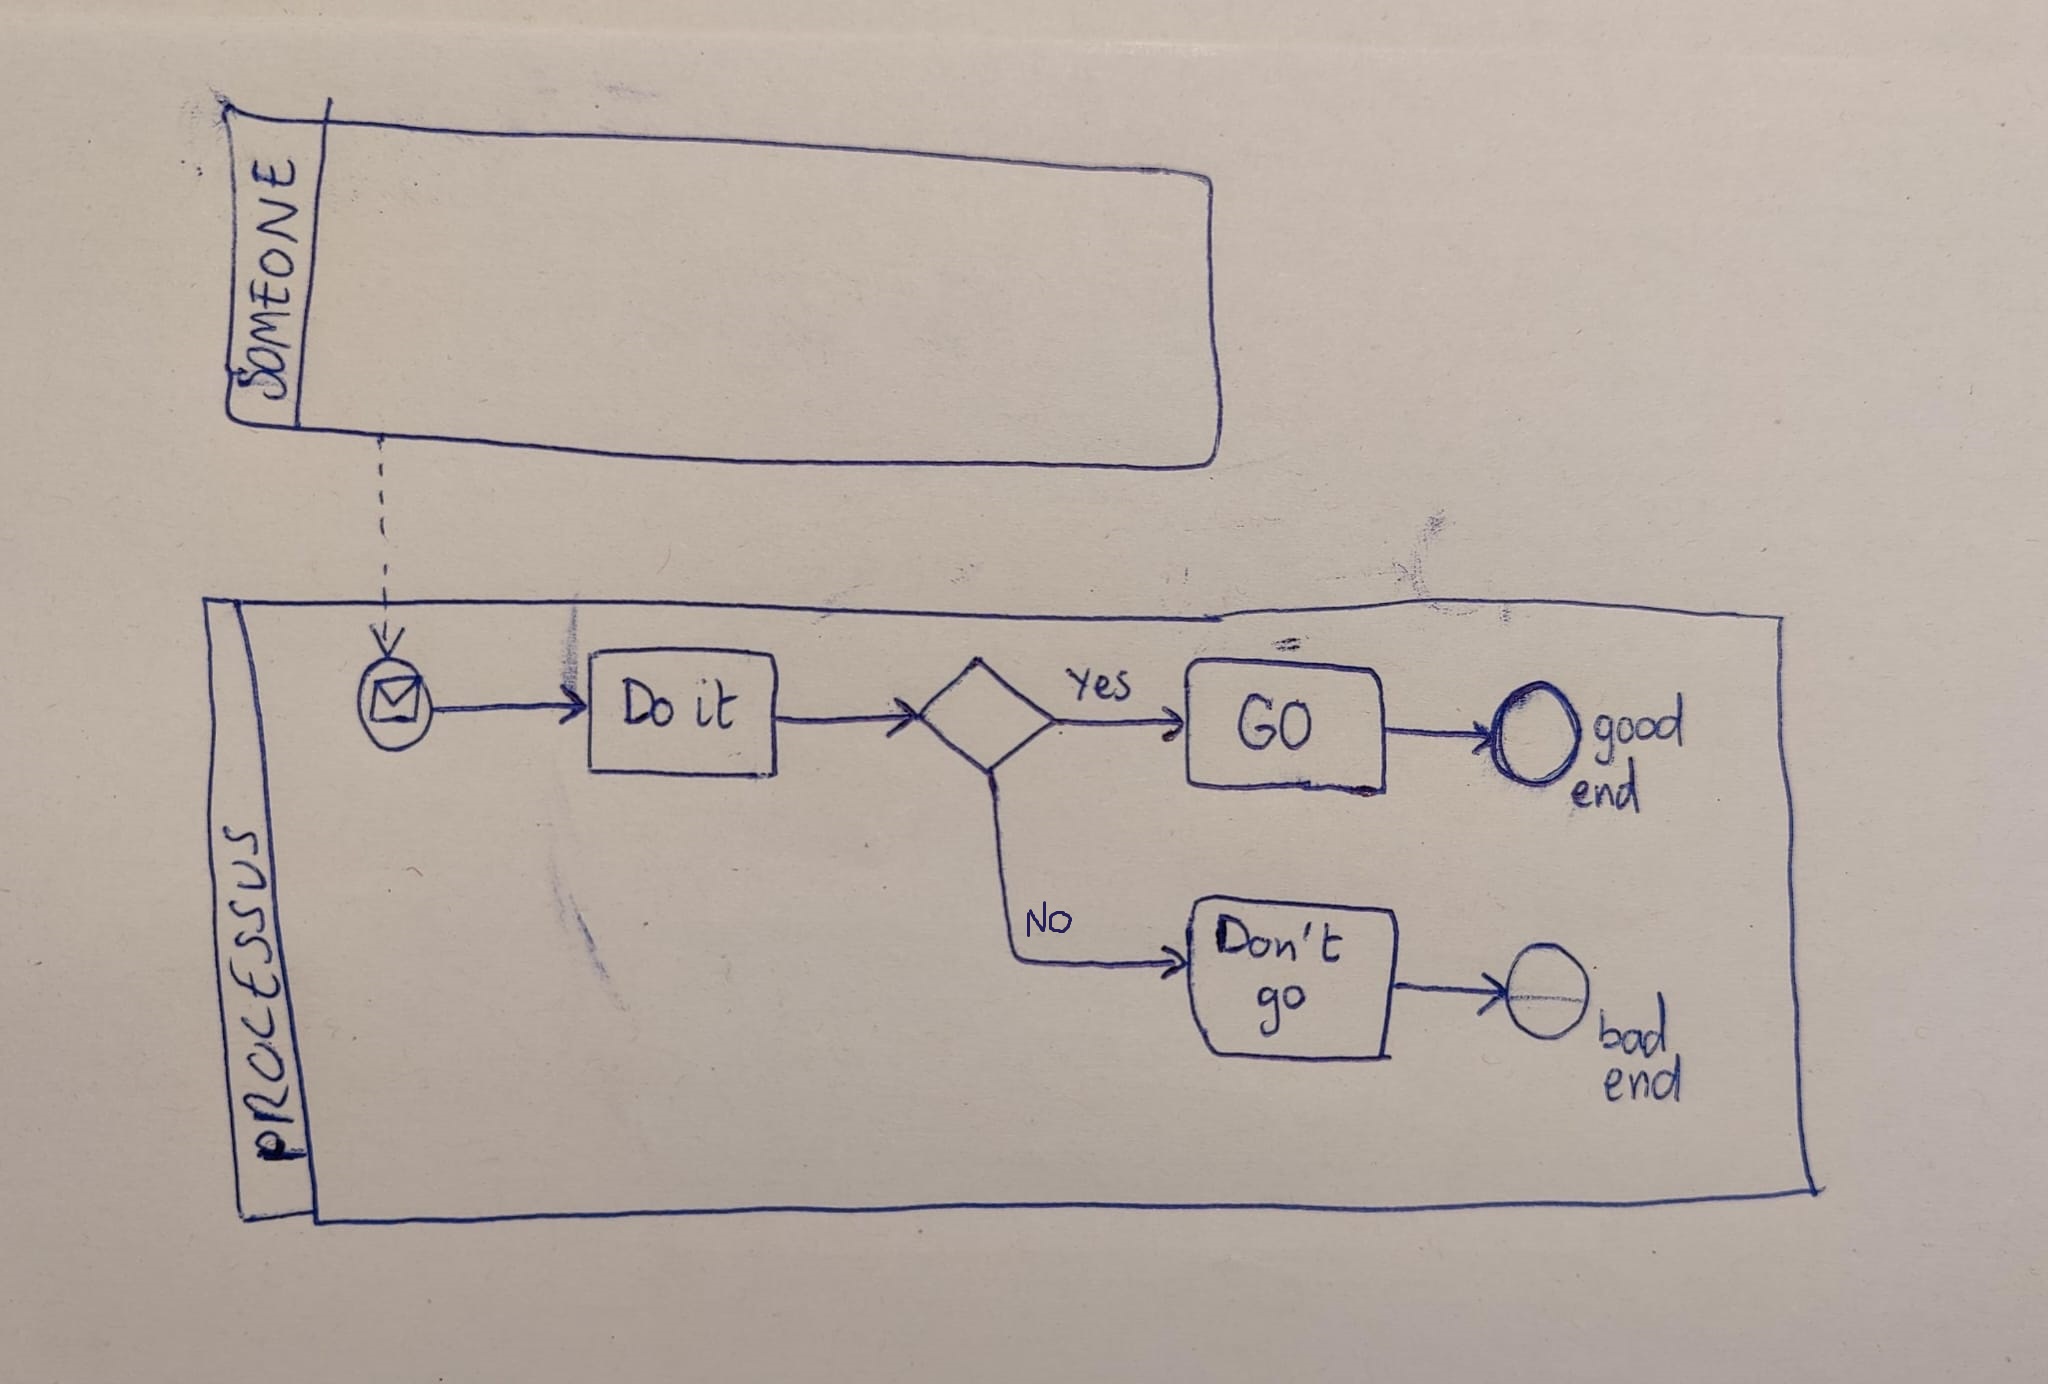 SOMEONE
PROCESSUS
Do it
Yes
GO
good
end
NO
Don't
go
bad
end